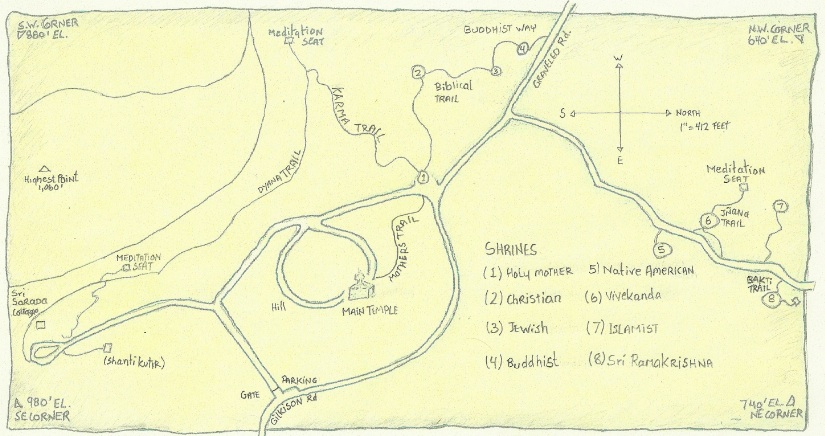 S.W. CORNER
880' EL.
Meditation
SEAT
BUDDHIST WAY
4
N.W. CORNER
640' EL.
GRAVELED Rd.
2
3
Biblical
TRAIL
KARMA TRAIL
W
S
NORTH
1"=412 FEET
E
Highest Point
1,060'
DYANA TRAIL
1
Meditation
SEAT
7
6
JÑANA
TRAIL
5
MOTHERS TRAIL
MEDITATION
SEAT
Sri
SARADA
Cottage
Hill
MAIN TEMPLE
BAKTI
TRAIL
8
(Shanti kutir)
SHRINES
(1) HOLY MOTHER
(2) Christian
(3) Jewish
(4) Buddhist
5) Native American
(6) Vivekanda
(7) ISLAMIST
(8) Sri RAMAKRISHNA
PARKING
GATE
GILKISON Rd
980' EL.
SE CORNER
740' EL
NE CORNER